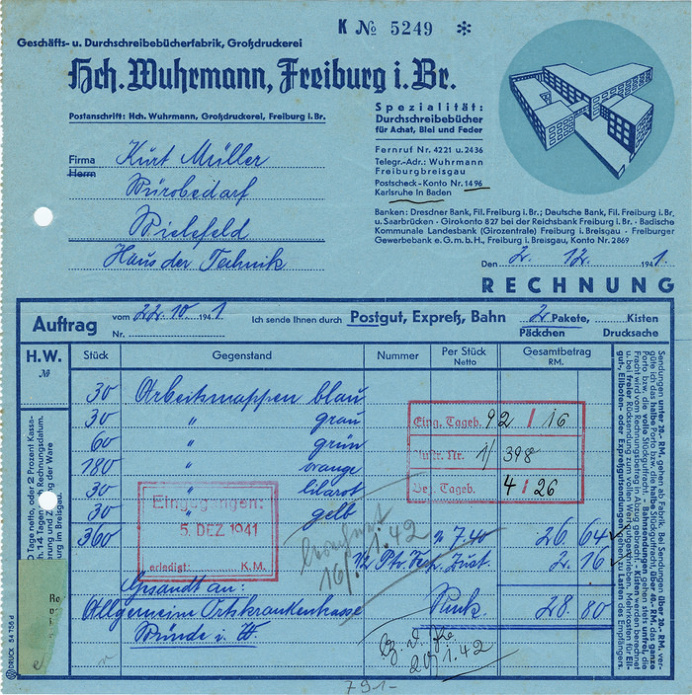 K № 5249 *
Geschäfts- u. Durchschreibebücherfabrik, Großdruckerei
Hch. Wuhrmann, Freiburg i. Br.
Postanschrift: Hch. Wuhrmann, Großdruckerei, Freiburg i. Br.
Spezialität:
Durchschreibebücher
für Achat, Blei und Feder
Fernruf Nr. 4221 u. 2436
Telegr.-Adr.: Wuhrmann
Freiburgbreisgau
Postscheck-Konto Nr. 1496
Karlsruhe in Baden
Firma Kurt Müller
Herrn
Bürobedarf
Bielefeld
Haus der Technik
Banken: Dresdner Bank, Fil. Freiburg i. Br.; Deutsche Bank, Fil. Freiburg i. Br.
u. Saarbrücken - Girokonto 827 bei der Reichsbank Freiburg i. Br. - Badische
Kommunale Landesbank (Girozentrale) Freiburg i. Breisgau - Freiburger
Gewerbebank e.G.m.b.H., Freiburg i. Breisgau, Konto Nr. 2869
Den 2. 12. 1941.
RECHNUNG
Auftrag vom 22.10. 1941 Ich sende Ihnen durch Postgut, Expreß, Bahn 2 Pakete, Kisten
Nr. Päckchen Drucksache
H.W. № Stück Gegenstand Nummer Per Stück Netto Gesamtbetrag RM.
30 Arbeitsmappen blau
30 " grau
60 " grün
180 " orange
30 " lilarot
30 " gelb
360 7.40 26 64
2 16
Gesandt an:
Allgemeine Ortskrankenkasse 28 80
Bünde i. W
Eing. Tageb. 92 16
Nr. 1/ 398
Tageb. 4 26
Eingegangen:
5. DEZ. 1941
erledigt: K. M.
16/1.42
20/1.42
791-
Sendungen unter 20.- RM. gehen ab Fabrik. Bei Sendungen über 20.- RM. ver-
güte ich das halbe Porto bzw. die halbe Stückgutfracht, über 40.- RM. das ganze
Porto bzw. die volle Stückgutfracht - Bahnsendungen gehen stets unfrei, die
Fracht wird vom Rechnungsbetrag in Abzug gebracht - Kisten werden berechnet
u. bei freier Rücksendung zum vollen Wert gutgeschrieben. Mehrkosten für Eil-
gut-, Eilboten- oder Expreßgutsendungen gehen zu Lasten des Empfängers.
DRUCK 54 756 d